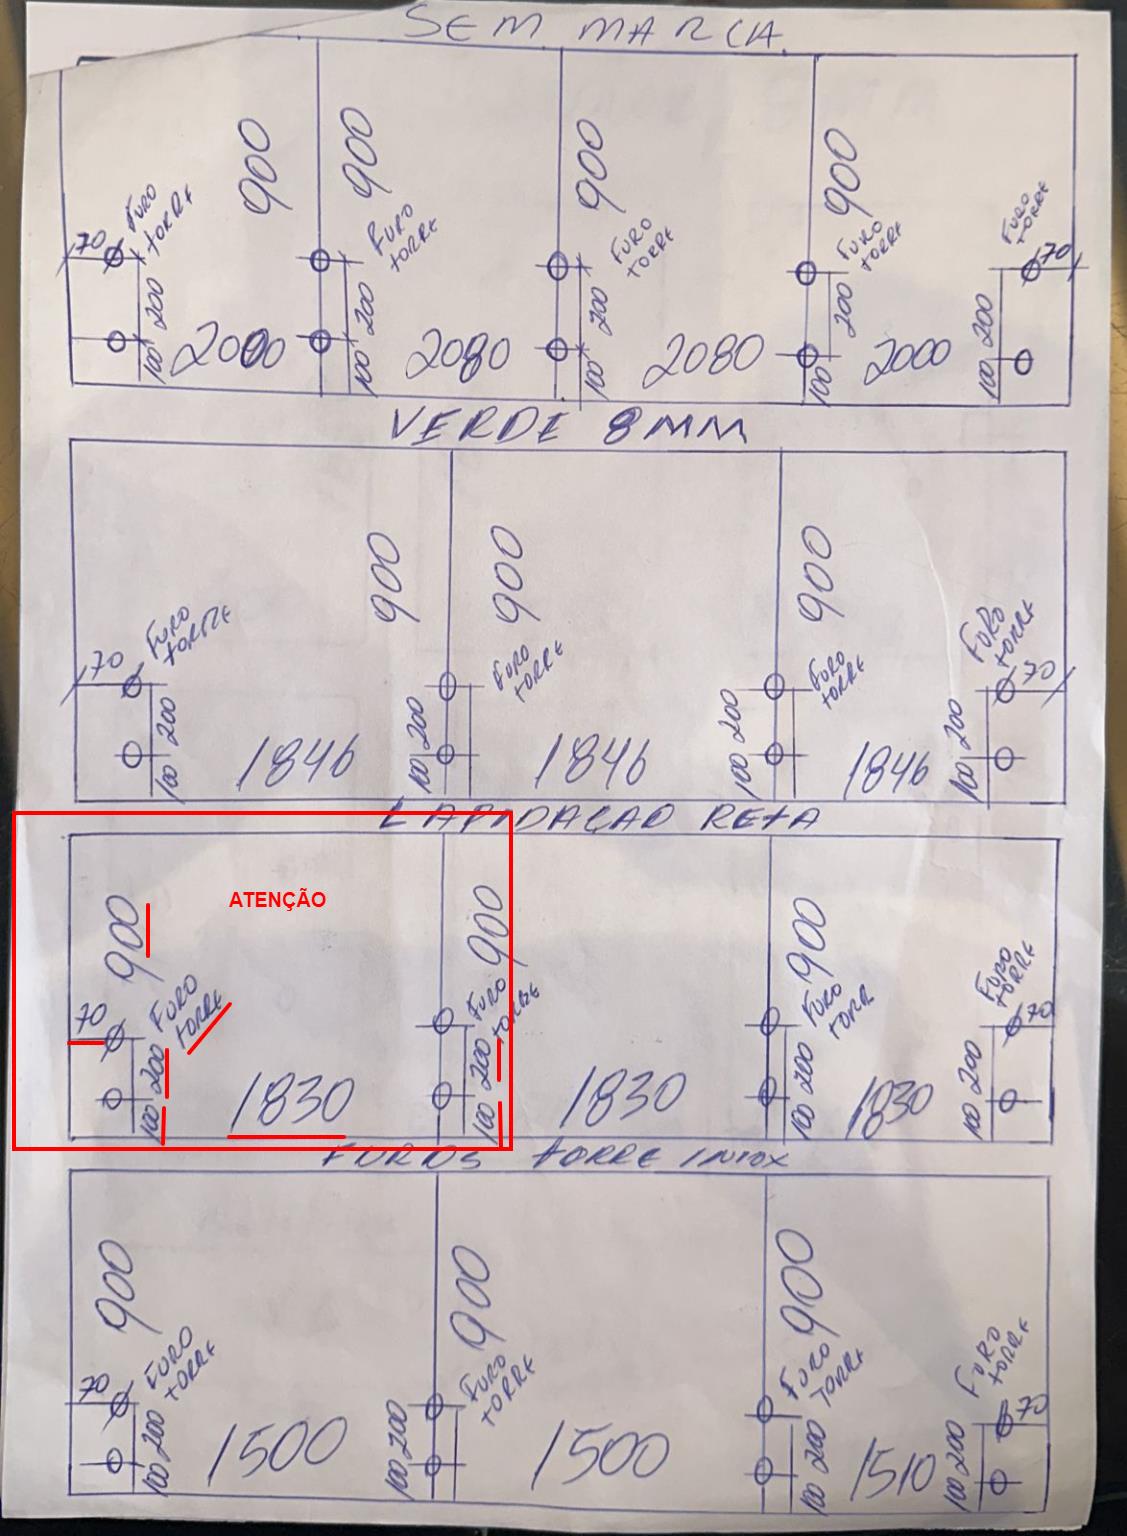 SEM MARCA.
900
900
900
900
FURO
TORRE
FURO
TORRE
FURO
TORRE
FURO
TORRE
FURO
TORRE
70
70
200
200
200
200
200
100
2000
100
2080
100
2080
100
2000
100
VERDE 8MM
900
900
900
FURO
TORRE
FURO
TORRE
FURO
TORRE
FURO
TORRE
70
70
200
200
200
200
100
1846
100
1846
100
1846
100
LAPIDAÇAO RETA
ATENÇÃO
900
900
900
FURO
TORRE
FURO
TORRE
FURO
TORR
FURO
TORRE
70
70
200
200
200
200
100
1830
100
1830
100
1830
100
FUROS TORRE INOX
900
900
900
FURO
TORRE
FURO
TORRE
FURO
TORRE
FURO
TORRE
70
70
200
200
200
200
100
1500
100
1500
100
1510
100